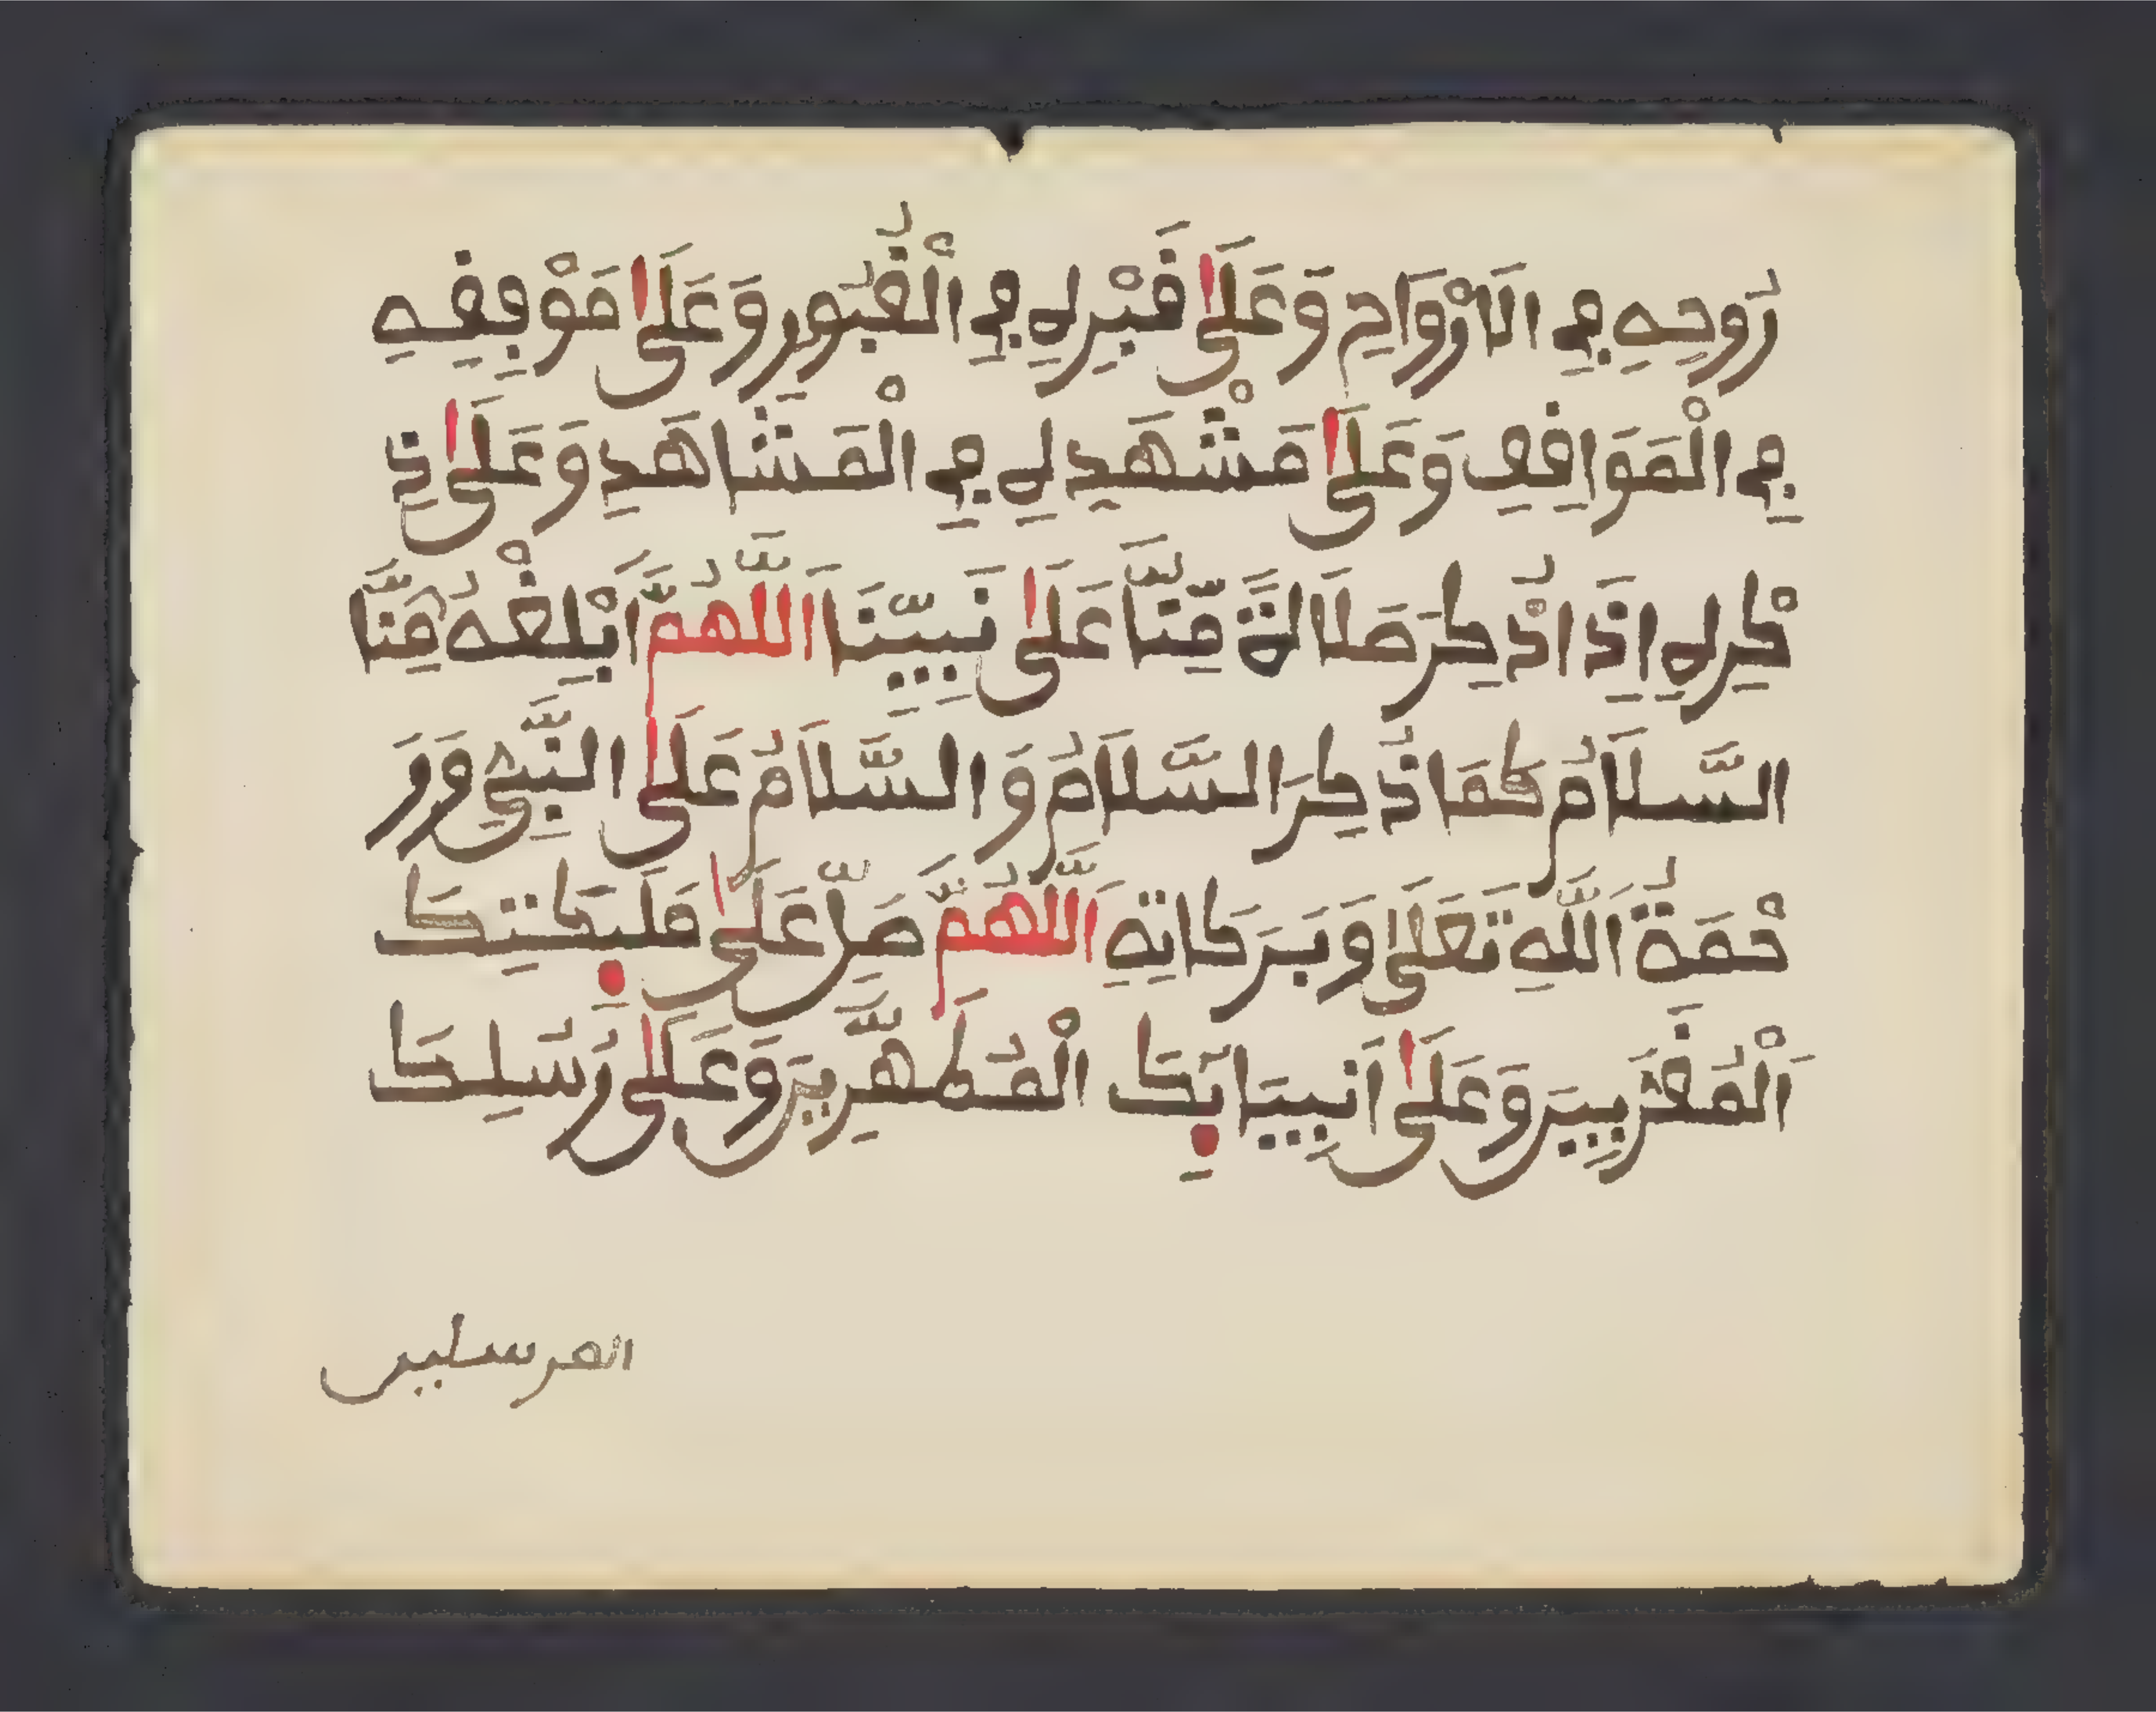 رُوحِهِ فِي الَارْوَاحِ وَعَلَىا قَبْرِهِ فِي الْقُبُورِ وَعَلَىا مَوْقِفِهِ
فِي الْمَوَاقِفِ وَعَلَىا مَشْهَدِهِ فِي الْمَشَاهَدِ وَعَلَىا ذِ
كْرِهِ اِذَا ذُكِرَ صَلَاةً مِّنَّا عَلَىا نَبِيِّنَا اَللَّهُمَّ اَبْلِغْهُ مِنَّا
السَّلَامُ كَمَا ذُكِرَ السَّلَامُ وَالسَّلَامُ عَلَىا النَّبِيِّ وَرَ
حْمَةُ اَللَّهِ تَعَلَىا وَبَرَكَاتِهِ اَللَّهُمَّ صَلِّ عَلَىا مَلَئِكَتِكَ
اَلْمُقَرَّبِينَ وَعَلَىا اَنبِيَائِكَ الْمُطَهَّرِينَ وَعَلَىا رُسُلِكَ
المرسلين